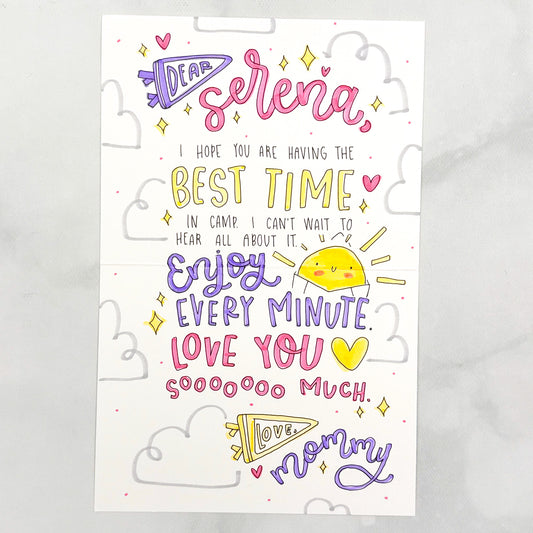 DEAR
Serena,
I HOPE YOU ARE HAVING THE
BEST TIME
IN CAMP. I CAN'T WAIT TO
HEAR ALL ABOUT IT.
Enjoy
EVERY MINUTE.
LOVE YOU
SOOOOOOO MUCH.
LOVE,
mommy